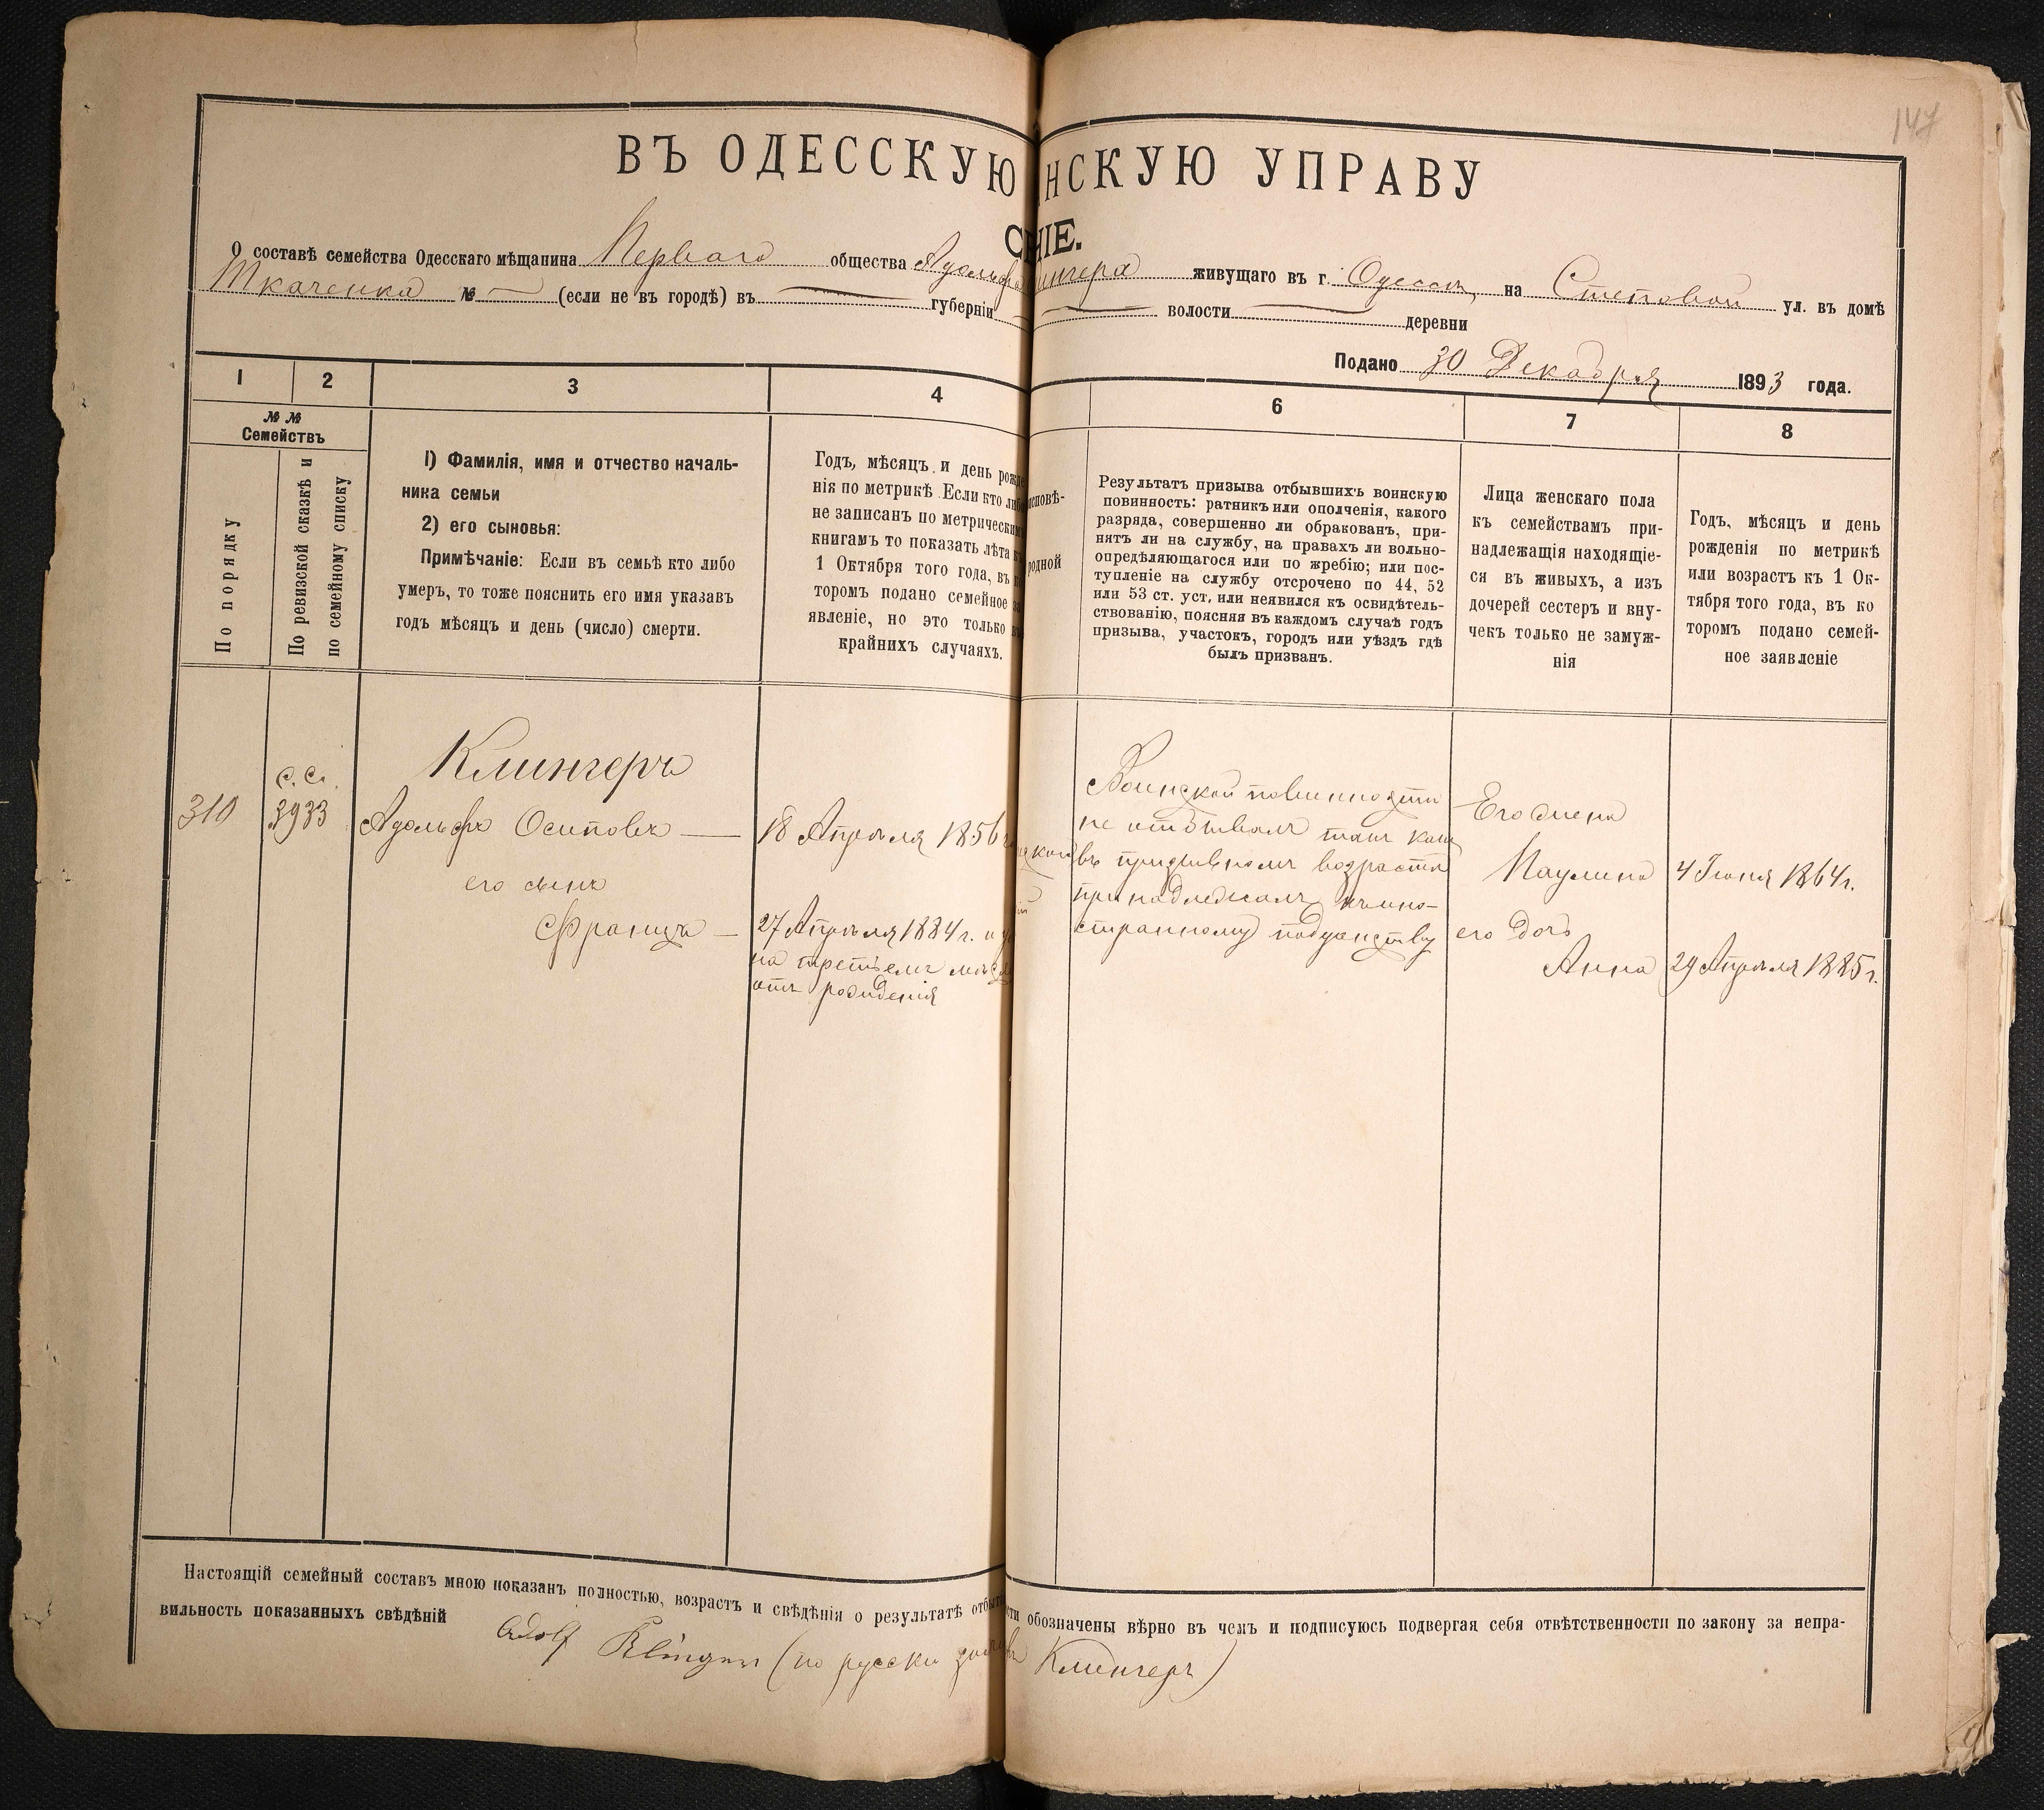 147
ВЪ ОДЕССКУЮ НСКУЮ УПРАВУ
НІЕ.
О составѣ семейства Одесскаго мѣщанина Перваго общества Адольфа ингера живущаго въ г. Одессѣ на Степовой ул. въ домѣ
Ткаченка № — (если не въ городѣ) въ — губерніи — волости — деревни
Подано 30 Декабря 1893 года.
1 2 3 4 6 7 8
№ №
Семействъ
По порядку
По ревизской сказкѣ и
по семейному списку
1) Фамилія, имя и отчество началь-
ника семьи
2) его сыновья:
Примѣчаніе: Если въ семьѣ кто либо
умеръ, то тоже пояснить его имя указавъ
годъ мѣсяцъ и день (число) смерти.
Годъ, мѣсяцъ и день рожде
нія по метрикѣ Если кто либо
не записанъ по метрическимъ
книгамъ то показать лѣта
1 Октября того года, въ
торомъ подано семейное
явленіе, но это только
крайнихъ случаяхъ.
исповѣ-
родной
Результатъ призыва отбывшихъ воинскую
повинность: ратникъ или ополченія, какого
разряда, совершенно ли обракованъ, при-
нятъ ли на службу, на правахъ ли вольно-
опредѣляющагося или по жребію; или пос-
тупленіе на службу отсрочено по 44, 52
или 53 ст. уст. или неявился къ освидѣтель-
ствованію, поясняя въ каждомъ случаѣ годъ
призыва, участокъ, городъ или уѣздъ гдѣ
былъ призванъ.
Лица женскаго пола
къ семействамъ при-
надлежащія находящіе-
ся въ живыхъ, а изъ
дочерей сестеръ и вну-
чекъ только не замуж-
нія
Годъ, мѣсяцъ и день
рожденія по метрикѣ
или возрастъ къ 1 Ок-
тября того года, въ ко
торомъ подано семей-
ное заявленіе
310
с. с.
3933
Клингеръ
Адольфъ Осиповъ —
его сынъ
Францъ —
18 Апрѣля 1856
27 Апрѣля 1884 г.
на третьемъ
отъ рожденія
Воинской повинности
не отбывалъ такъ какъ
въ призывномъ возрастѣ
принадлежалъ къ ино-
странному подданству
Его жена
Паулина
его дочь
Анна
4 Іюня 1864 г.
29 Апрѣля 1885 г.
Настоящій семейный составъ мною показанъ полностью, возрастъ и свѣдѣнія о результатѣ отбы сти обозначены вѣрно въ чемъ и подписуюсь подвергая себя отвѣтственности по закону за непра-
вильность показанныхъ свѣдѣній
Adolf Klinger (по русски Клингеръ)